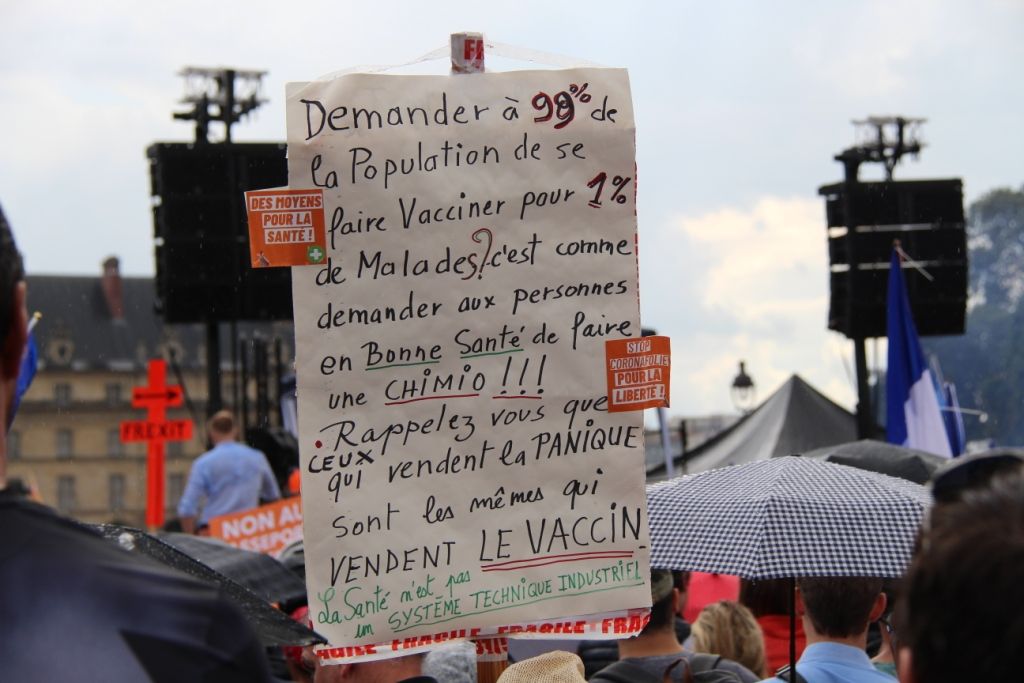 Demander à 99% de
la Population de se
faire Vacciner pour 1%
de Malades? c'est comme
demander aux personnes
en Bonne Santé de faire
une CHIMIO !!!
. Rappelez vous que
CEUX
qui vendent la PANIQUE
sont les mêmes qui
VENDENT LE VACCIN
La Santé n'est pas
un SYSTÈME TECHNIQUE INDUSTRIEL
DES MOYENS
POUR LA
SANTÉ !
STOP
CORONAFOLIE
POUR LA
LIBERTÉ !
FREXIT
NON AU
FRAGILE FRAGILE